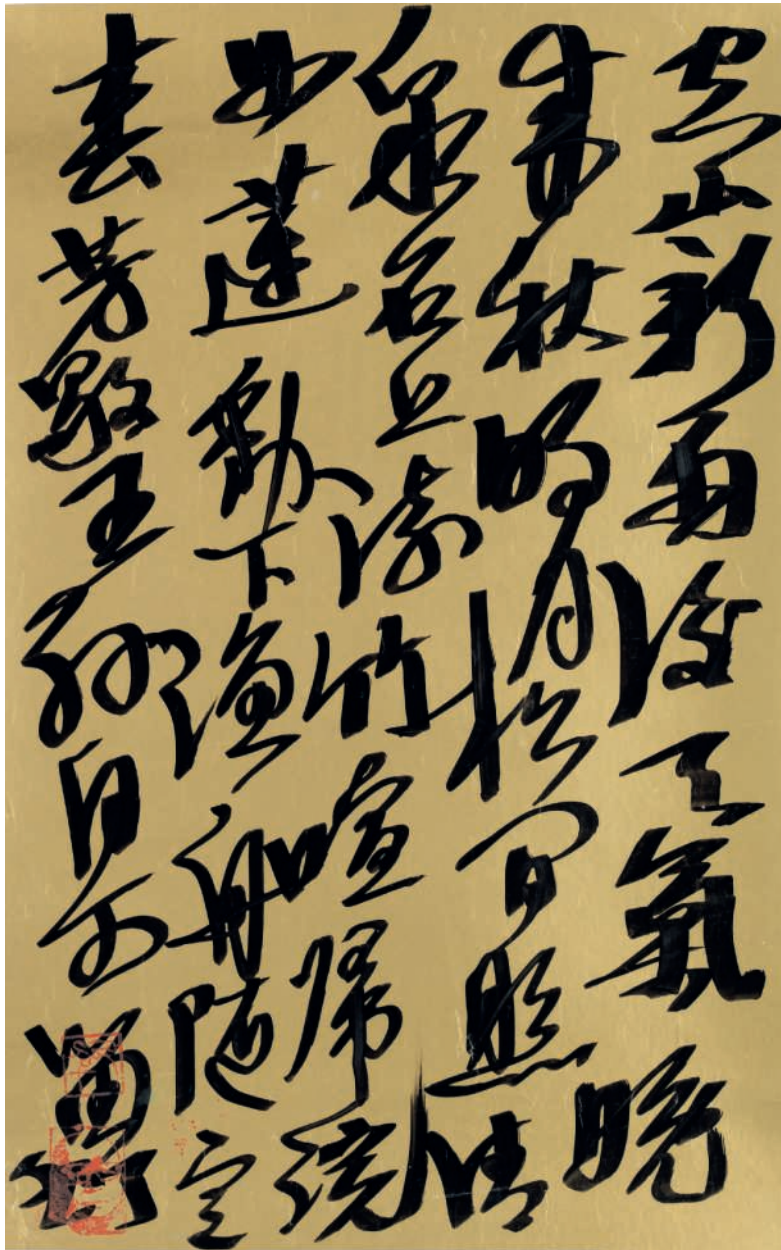 空山新雨後天氣晚
来秋明月松间照清
泉石上流竹喧歸浣
女蓮動下漁舟随意
春芳歇王孫自可留